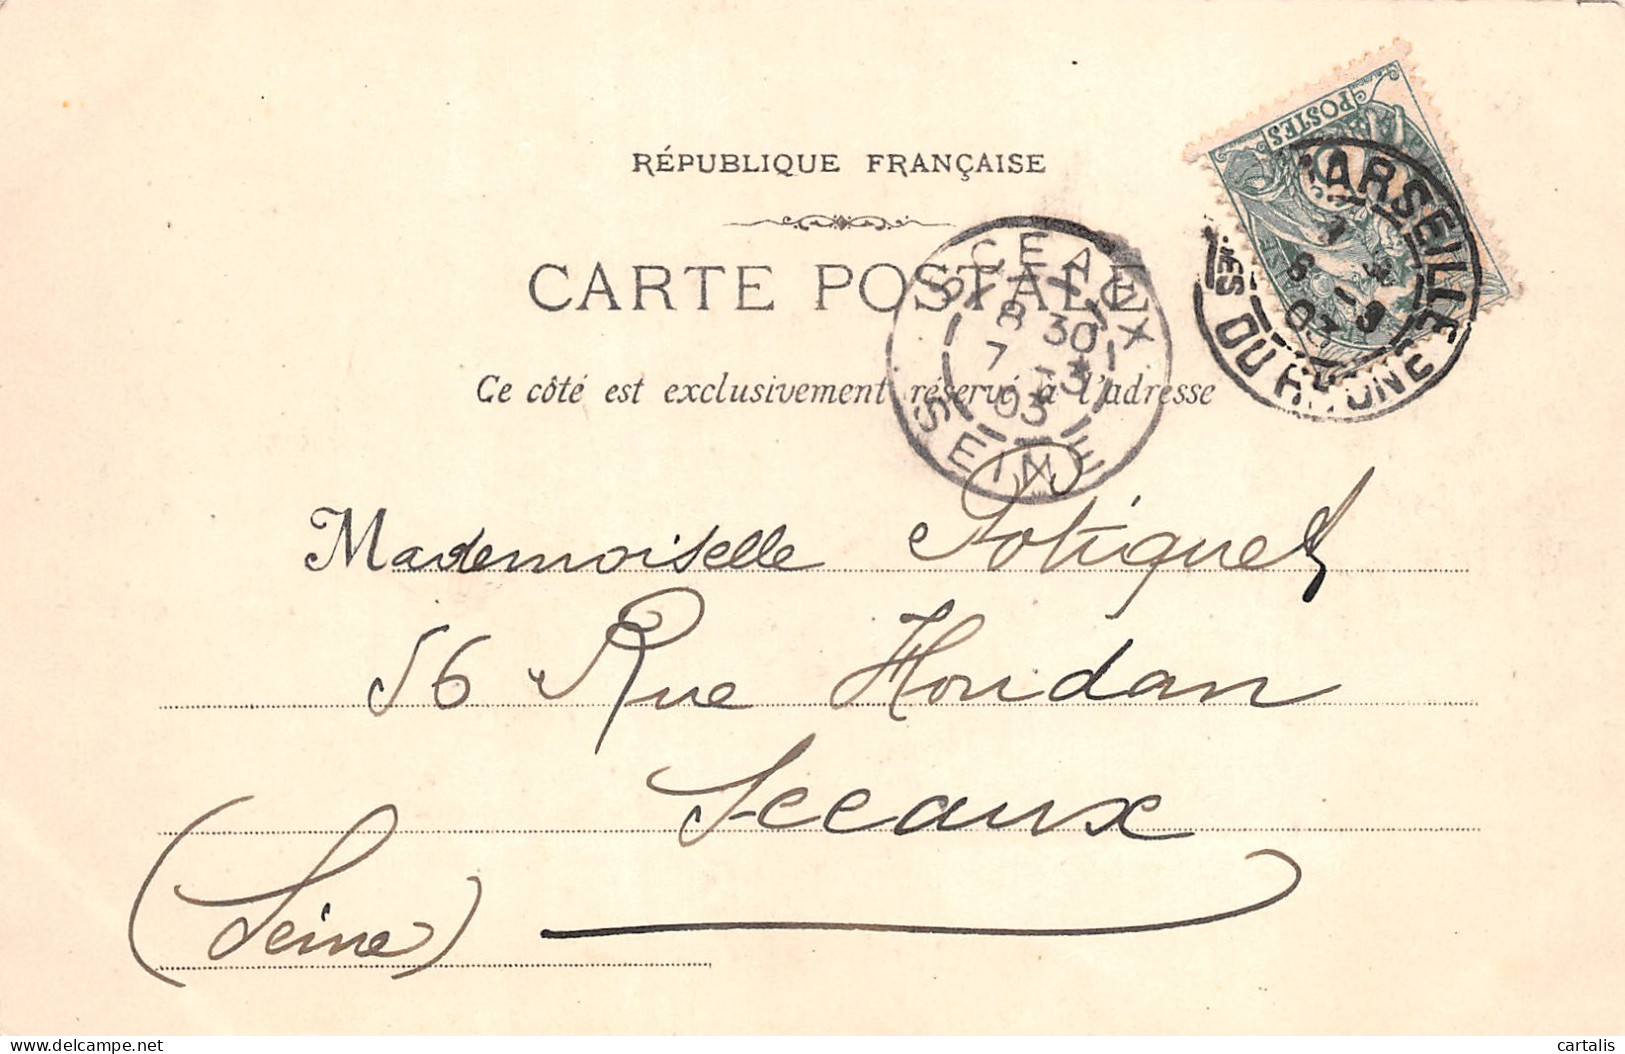 RÉPUBLIQUE FRANÇAISE
CARTE POSTALE
Ce côté est exclusivement réservé à l'adresse
POSTES
MARSEILLE
03
BCHES DU RHONE
SCEAUX
8 30
7 -3
03
SEINE
Mademoiselle Potiquet
56 Rue Houdan
Sceaux
(Seine)
delcampe.net
cartalis